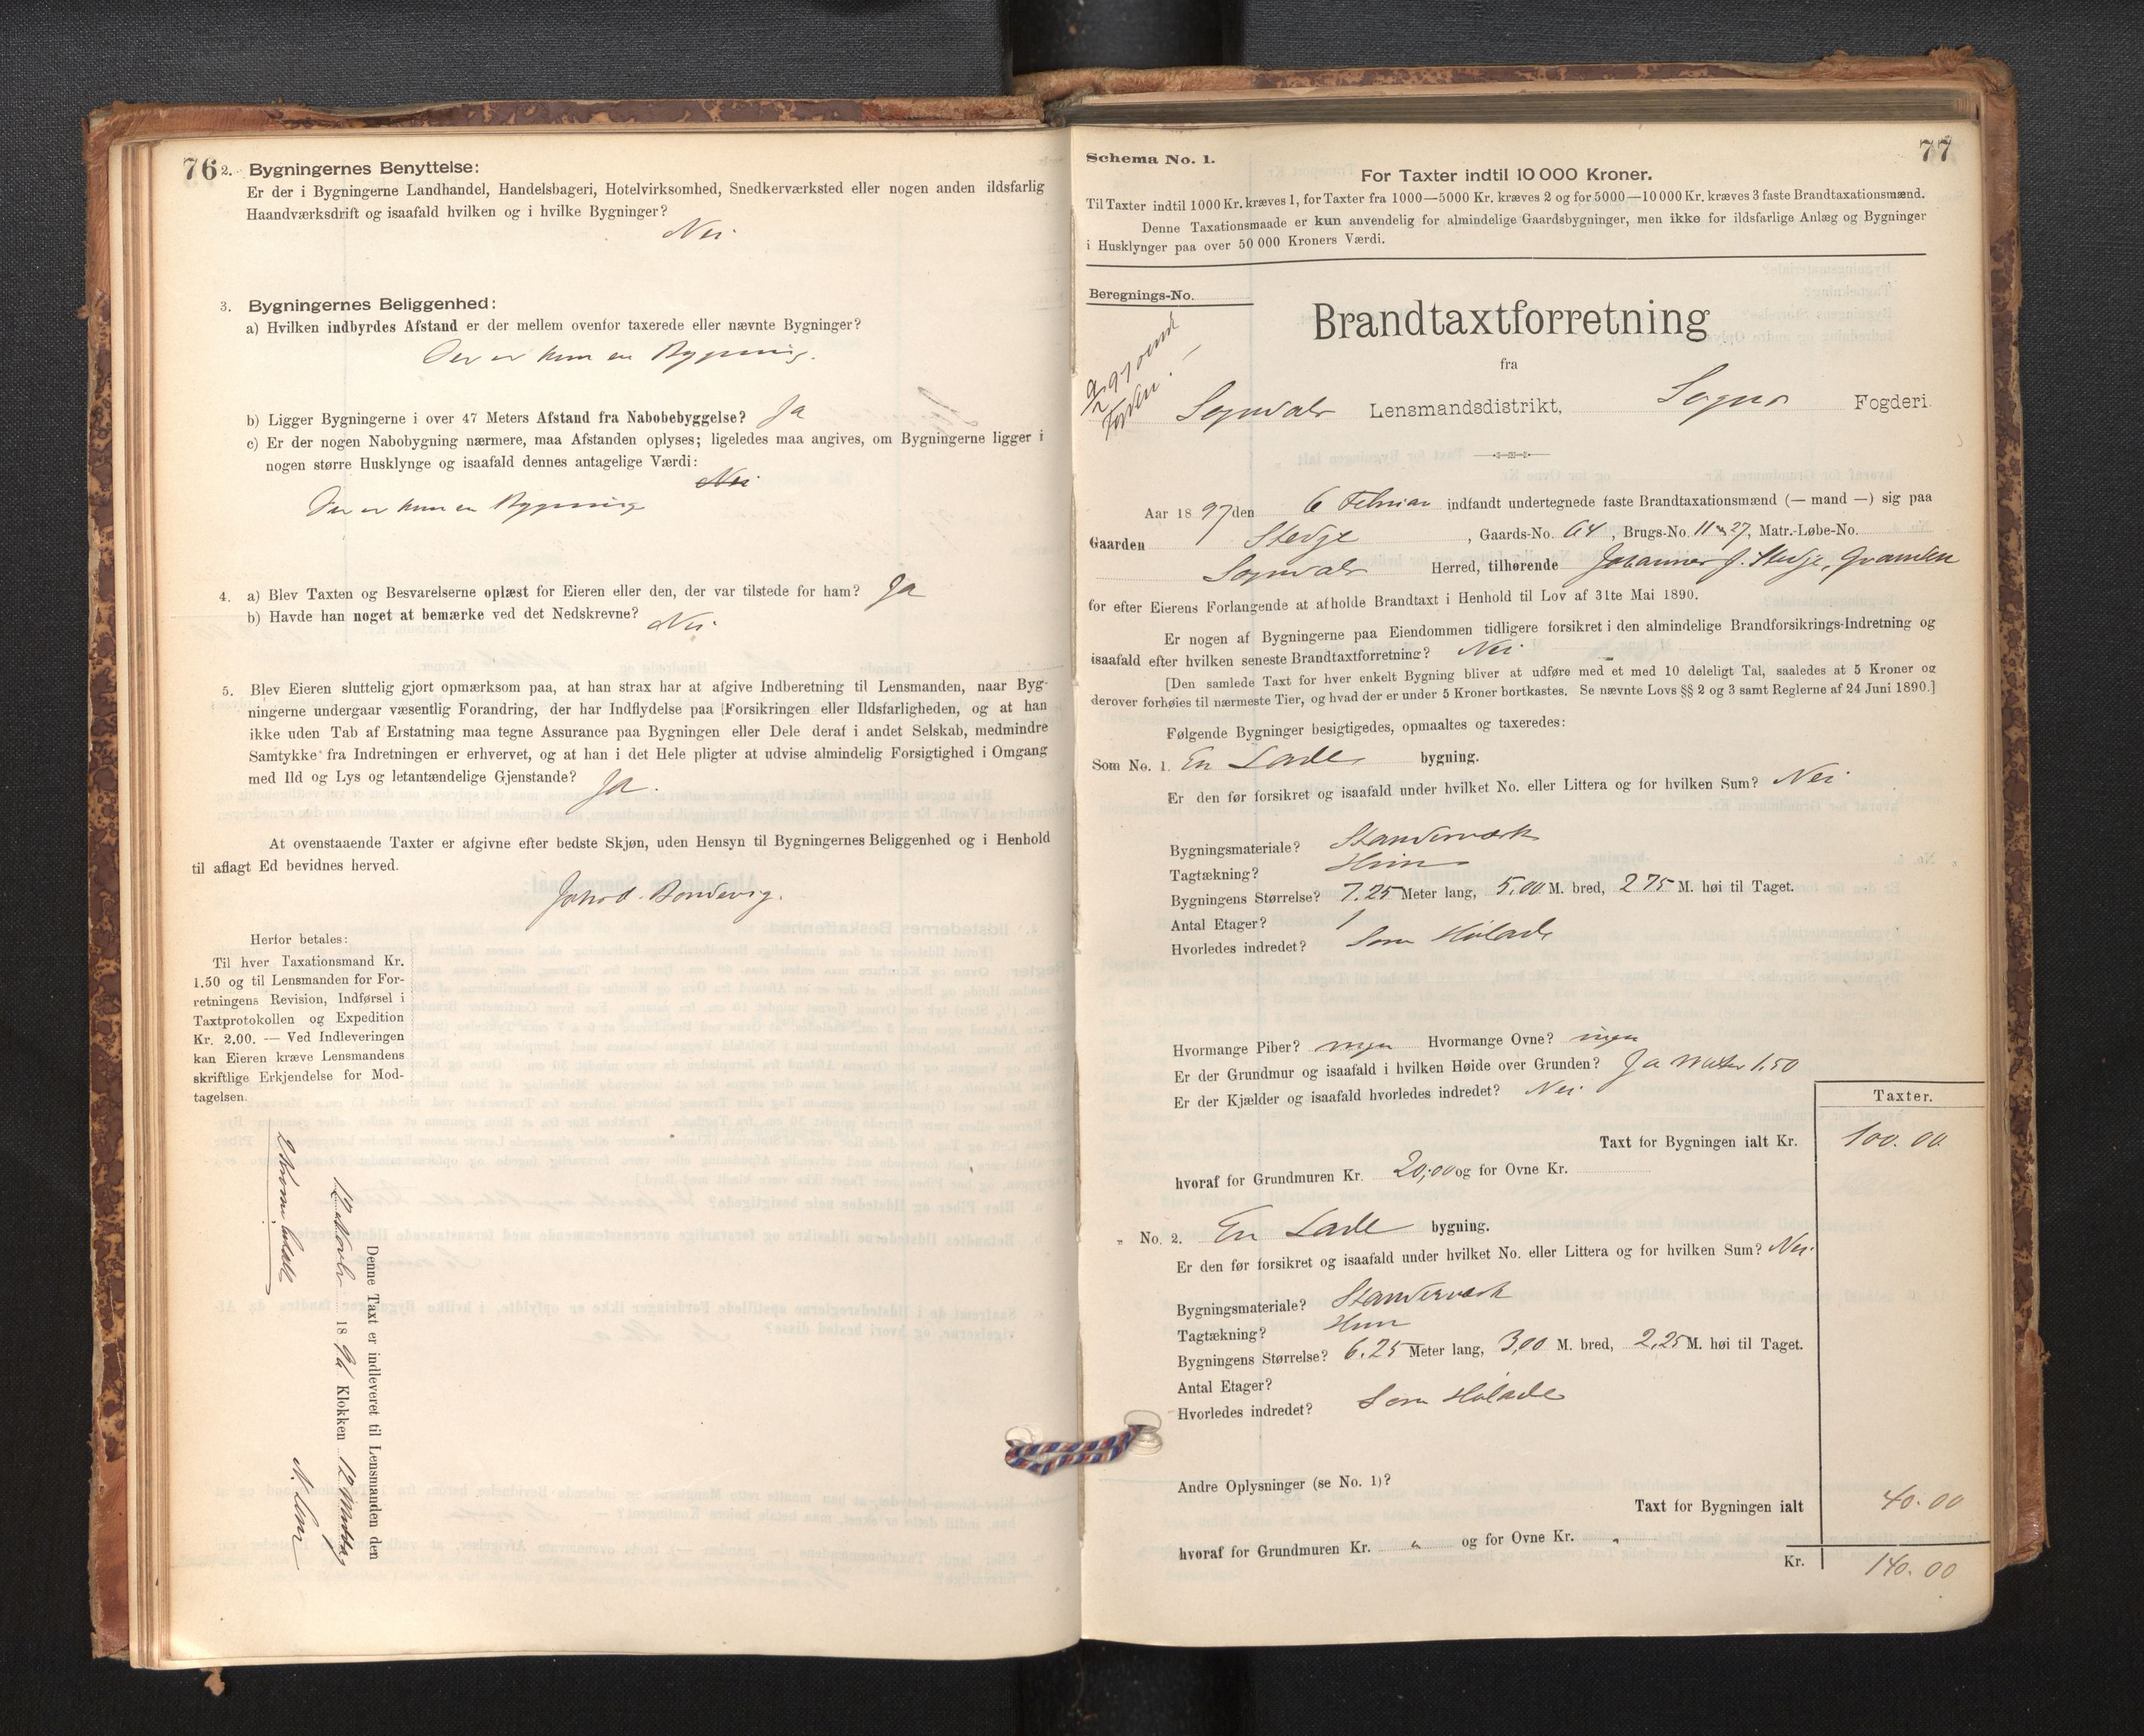 76
2. Bygningernes Benyttelse:
Er der i Bygningerne Landhandel, Handelsbageri, Hotelvirksomhed, Snedkerværksted eller nogen anden ildsfarlig
Haandværksdrift og isaafald hvilken og i hvilke Bygninger?
Nei.
3. Bygningernes Beliggenhed:
a) Hvilken indbyrdes Afstand er der mellem ovenfor taxerede eller nævnte Bygninger?
Der er kun en Bygning.
b) Ligger Bygningerne i over 47 Meters Afstand fra Nabobebyggelse? Ja
c) Er der nogen Nabobygning nærmere, maa Afstanden oplyses; ligeledes maa angives, om Bygningerne ligger i
nogen større Husklynge og isaafald dennes antagelige Værdi:
Nei
Der er kun en Bygning
4. a) Blev Taxten og Besvarelserne oplæst for Eieren eller den, der var tilstede for ham? Ja
b) Havde han noget at bemærke ved det Nedskrevne? Nei.
5. Blev Eieren sluttelig gjort opmærksom paa, at han strax har at afgive Indberetning til Lensmanden, naar Byg-
ningerne undergaar væsentlig Forandring, der har Indflydelse paa Forsikringen eller Ildsfarligheden, og at han
ikke uden Tab af Erstatning maa tegne Assurance paa Bygningen eller Dele deraf i andet Selskab, medmindre
Samtykke fra Indretningen er erhvervet, og at han i det Hele pligter at udvise almindelig Forsigtighed i Omgang
med Ild og Lys og letantændelige Gjenstande? Ja.
At ovenstaaende Taxter er afgivne efter bedste Skjøn, uden Hensyn til Bygningernes Beliggenhed og i Henhold
til aflagt Ed bevidnes herved.
Bondevig.
Herfor betales:
Til hver Taxationsmand Kr.
1.50 og til Lensmanden for For-
retningens Revision, Indførsel i
Taxtprotokollen og Expedition
Kr. 2.00. — Ved Indleveringen
kan Eieren kræve Lensmandens
skriftlige Erkjendelse for Mod-
tagelsen.
Denne Taxt er indleveret til Lensmanden den
12 Novbr 1896 Klokken 12 Middag
2 Kroner betalt
77
Schema No. 1.
For Taxter indtil 10 000 Kroner.
Til Taxter indtil 1000 Kr. kræves 1, for Taxter fra 1000—5000 Kr. kræves 2 og for 5000—10 000 Kr. kræves 3 faste Brandtaxationsmænd.
Denne Taxationsmaade er kun anvendelig for almindelige Gaardsbygninger, men ikke for ildsfarlige Anlæg og Bygninger
i Husklynger paa over 50 000 Kroners Værdi.
Beregnings-No.
Brandtaxtforretning
fra
Sogndals Lensmandsdistrikt, Sogns Fogderi.
Aar 1897 den 6 Februar indfandt undertegnede faste Brandtaxationsmænd (— mand —) sig paa
Gaarden Stedje, Gaards-No. 64, Brugs-No. 11 & 27, Matr.-Løbe-No.
Sogndals Herred, tilhørende Johannes J. Stedje,
for efter Eierens Forlangende at afholde Brandtaxt i Henhold til Lov af 31te Mai 1890.
Er nogen af Bygningerne paa Eiendommen tidligere forsikret i den almindelige Brandforsikrings-Indretning og
isaafald efter hvilken seneste Brandtaxtforretning? Nei
[Den samlede Taxt for hver enkelt Bygning bliver at udføre med et med 10 deleligt Tal, saaledes at 5 Kroner og
derover forhøies til nærmeste Tier, og hvad der er under 5 Kroner bortkastes. Se nævnte Lovs §§ 2 og 3 samt Reglerne af 24 Juni 1890.]
Følgende Bygninger besigtigedes, opmaaltes og taxeredes:
Som No. 1. En Lade bygning.
Er den før forsikret og isaafald under hvilket No. eller Littera og for hvilken Sum? Nei
Bygningsmateriale? Standerværk
Tagtækning? Hun
Bygningens Størrelse? 7.25 Meter lang, 5.00 M. bred, 2 75 M. høi til Taget.
Antal Etager? 1
Hvorledes indredet? Som Hølade
Hvormange Piber? ingen Hvormange Ovne? ingen
Er der Grundmur og isaafald i hvilken Høide over Grunden? Ja Meter 1.50
Er der Kjælder og isaafald hvorledes indredet? Nei.
Taxter.
Taxt for Bygningen ialt Kr. 100.00
hvoraf for Grundmuren Kr. 20,00 og for Ovne Kr.
„ No. 2. En Lade bygning.
Er den før forsikret og isaafald under hvilket No. eller Littera og for hvilken Sum? Nei.
Bygningsmateriale? Standerværk
Tagtækning? Hun
Bygningens Størrelse? 6.25 Meter lang, 3,00 M. bred, 2,25 M. høi til Taget.
Antal Etager?
Hvorledes indredet? Som Hølade
Andre Oplysninger (se No. 1)?
Taxt for Bygningen ialt 40.00
hvoraf for Grundmuren Kr. „ og for Ovne Kr. „
Kr. 140.00